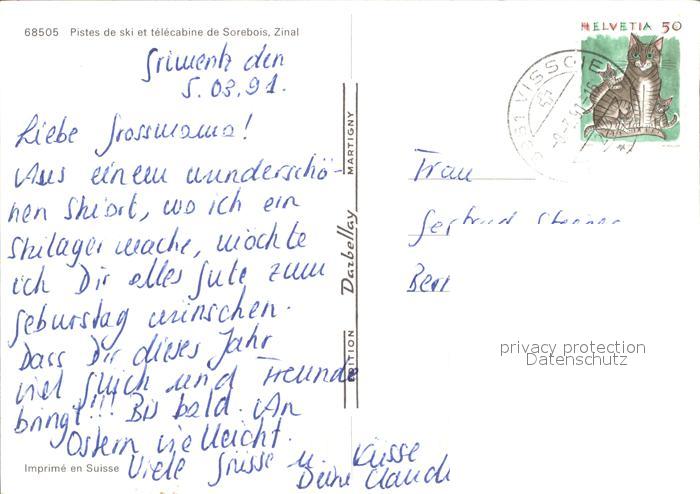 68505 Pistes de ski et télécabine de Sorebois, Zinal
HELVETIA 50
Grimentz den
5.03.91.
Liebe Grossmama!
Aus einem wunderschö-
nen Skiort, wo ich ein
Skilager mache, möchte
ich Dir alles Gute zum
Geburstag wünschen.
Dass Dir dieses Jahr
viel Glück und Freunde
bringt!!! Bis bald. An
Ostern vielleicht.
Viele Grüsse u. Küsse
Deine
EDITION Darbellay MARTIGNY
Frau
Gertrud
Bern
privacy protection
Datenschutz
Imprimé en Suisse